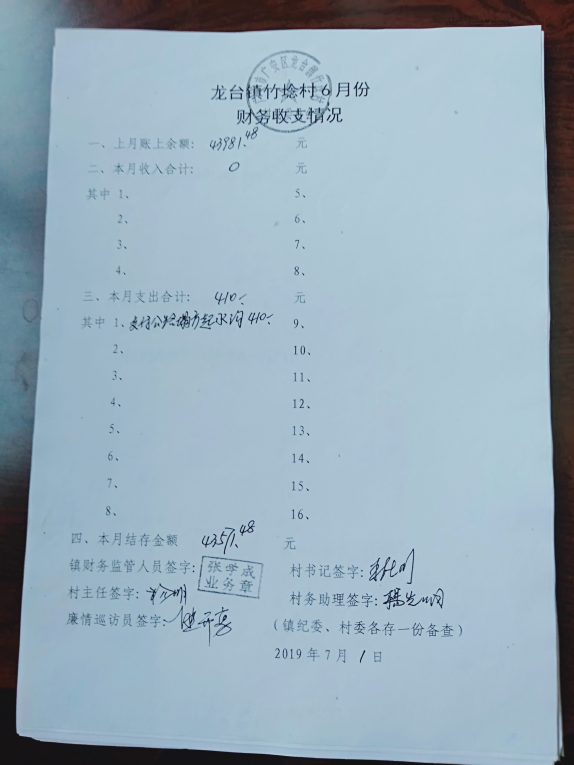 龙台镇竹埝村6月份
财务收支情况
一、上月账上余额: 43981.48 元
二、本月收入合计: 0 元
其中 1、 5、
2、 6、
3、 7、
4、 8、
三、本月支出合计: 410 元
其中 1、支付公路塌方起水沟410 9、
2、 10、
3、 11、
4、 12、
5、 13、
6、 14、
7、 15、
8、 16、
四、本月结存金额 43571.48 元
镇财务监管人员签字: 张 成 业务章 村书记签字:
村主任签字: 村务助理签字:
廉情巡访员签字: (镇纪委、村委各存一份备查)
2019年7月1日